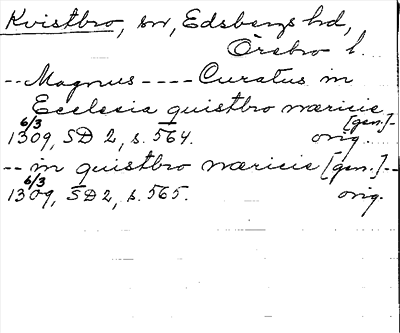 Kvistbro, sn, Edsbergs hd,
Örebro l.
-- Magnus ---- Curatus in
Ecclesia quistbro næricie
[gen.]-
6/3
1309, SD 2, s. 564. orig.
-- in quistbro næricie [gen.]--
6/3
1309, SD 2, s. 565. orig.